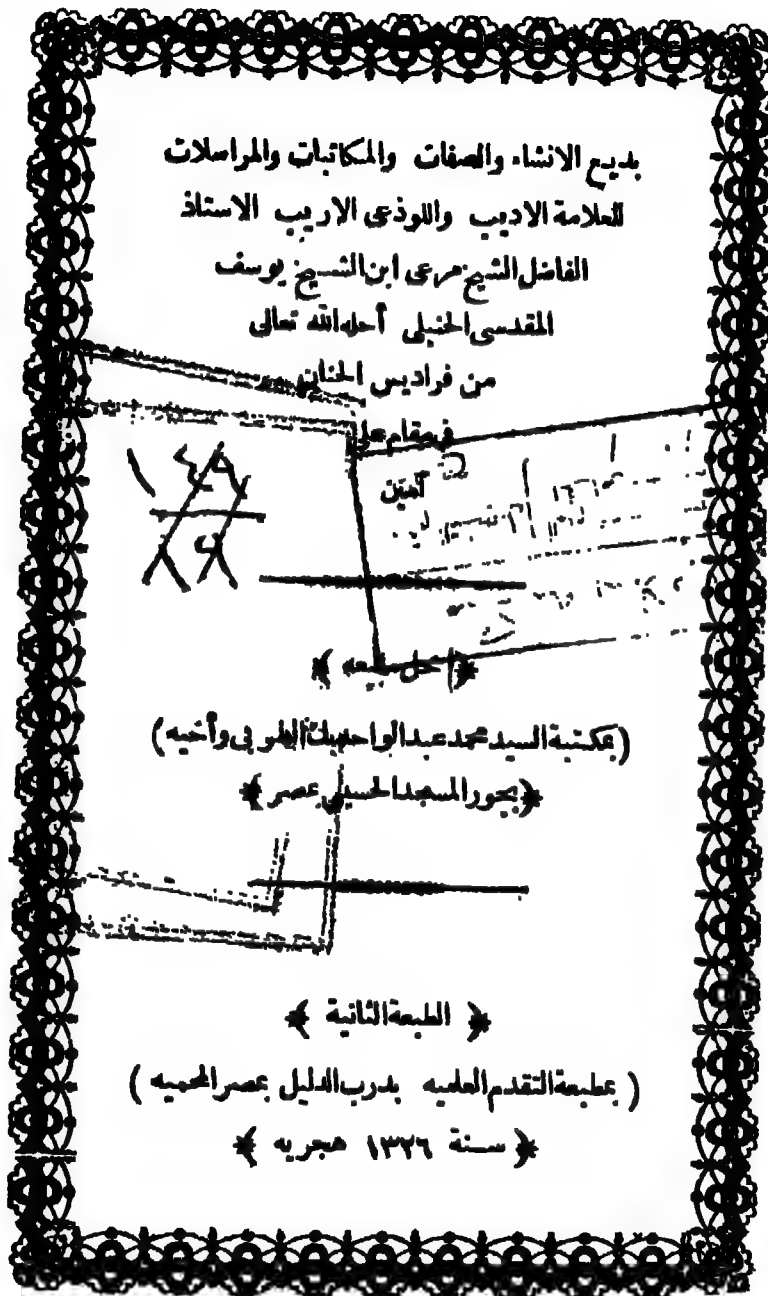 بديع الانشاء والصفات والمكاتبات والمراسلات
للعلامة الاديب واللوذعى الاريب الاستاذ
الفاضل الشيخ مرعى ابن الشيخ يوسف
المقدسى الحنبلى أحله الله تعالى
من فراديس الجنان
فى مقام على
آمين
(محل بيعه)
(بمكتبة السيد محمد عبد الواحد بك الطوبى وأخيه)
(بجور المسجد الحسينى بمصر)
(الطبعة الثانية)
(بمطبعة التقدم العلميه بدرب الدليل بمصر المحميه)
(سنة ١٣٢٦ هجريه)